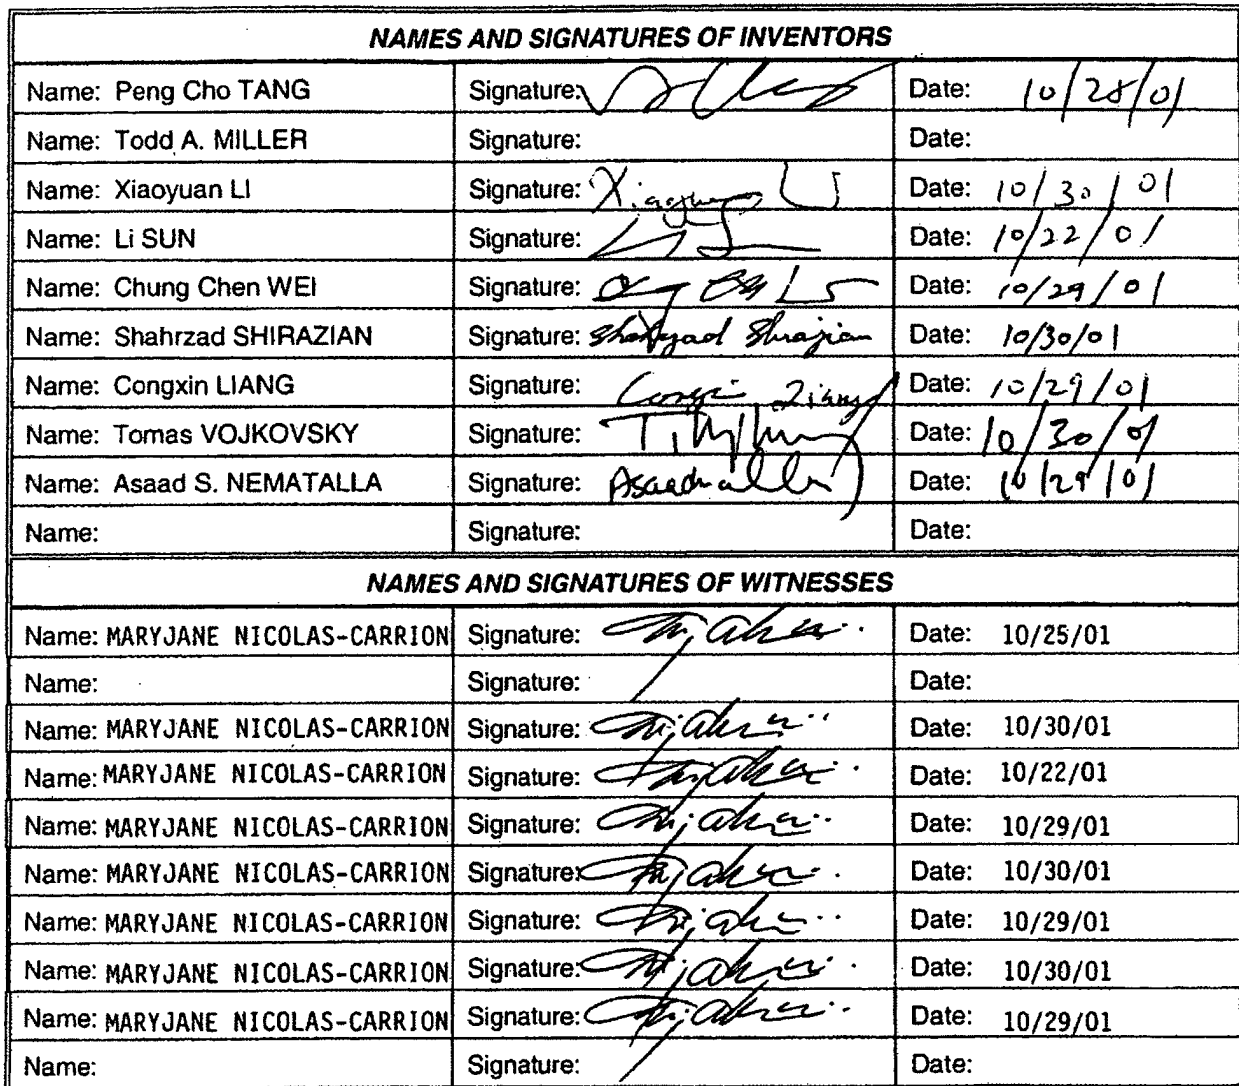 NAMES AND SIGNATURES OF INVENTORS
Name: Peng Cho TANG Signature: Date: 10/28/01
Name: Todd A. MILLER Signature: Date:
Name: Xiaoyuan LI Signature: Xiaoyuan Li Date: 10/30/01
Name: Li SUN Signature: Date: 10/22/01
Name: Chung Chen WEI Signature: Date: 10/29/01
Name: Shahrzad SHIRAZIAN Signature: Shahrzad Shirazian Date: 10/30/01
Name: Congxin LIANG Signature: Congxin Liang Date: 10/29/01
Name: Tomas VOJKOVSKY Signature: Date: 10/30/01
Name: Asaad S. NEMATALLA Signature: Date: 10/29/01
Name: Signature: Date:
NAMES AND SIGNATURES OF WITNESSES
Name: MARYJANE NICOLAS-CARRION Signature: Date: 10/25/01
Name: Signature: Date:
Name: MARYJANE NICOLAS-CARRION Signature: Date: 10/30/01
Name: MARYJANE NICOLAS-CARRION Signature: Date: 10/22/01
Name: MARYJANE NICOLAS-CARRION Signature: Date: 10/29/01
Name: MARYJANE NICOLAS-CARRION Signature: Date: 10/30/01
Name: MARYJANE NICOLAS-CARRION Signature: Date: 10/29/01
Name: MARYJANE NICOLAS-CARRION Signature: Date: 10/30/01
Name: MARYJANE NICOLAS-CARRION Signature: Date: 10/29/01
Name: Signature: Date: